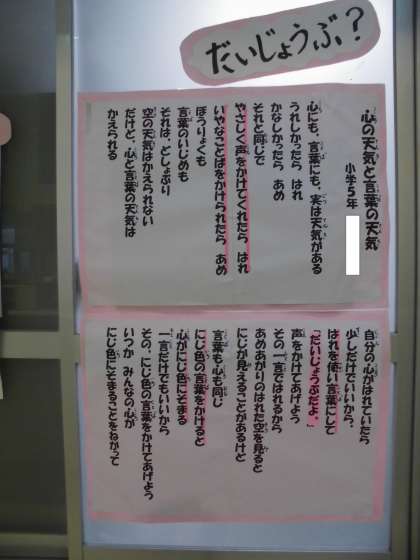 だいじょうぶ？
心の天気と言葉の天気
小学５年
心にも、言葉にも、実は天気がある
うれしかったら はれ
かなしかったら あめ
それと同じで
やさしく声をかけてくれたら はれ
いやなことばをかけられたら あめ
ぼうりょくも
言葉のいじめも
それは、どしゃぶり
空の天気はかえられない
だけど、心と言葉の天気は
かえられる
自分の心が晴れていたら
少しだけでいいから、
はれを使い言葉にして
「だいじょうぶだよ。」
声をかけてあげよう
その一言ではれるから
あめあがりのはれた空を見ると
にじが見えることがあるけど
言葉も心も同じ
にじ色の言葉をかけると
心がにじ色にそまる
一言だけでもいいから
その、にじ色の言葉をかけてあげよう
いつか みんなの心が
にじ色にそまることをねがって